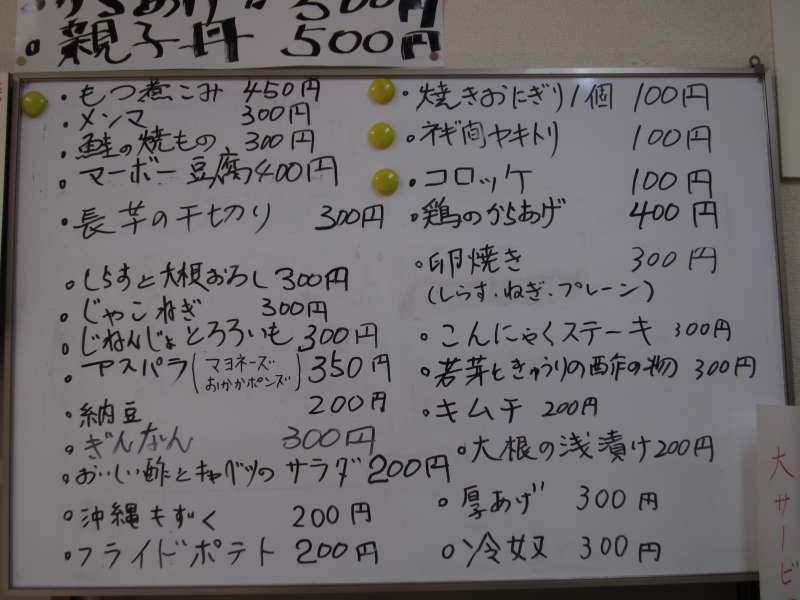 からあげ 500円
親子丼 500円
・もつ煮こみ 450円
・メンマ 300円
・鮭の焼もの 300円
・マーボー豆腐 400円
・長芋の千切り 300円
・しらすと大根おろし 300円
・じゃこねぎ 300円
・じねんじょとろろいも 300円
・アスパラ(マヨネーズ おかかポンズ) 350円
・納豆 200円
・ぎんなん 300円
・おいしい酢とキャベツのサラダ 200円
・沖縄もずく 200円
・フライドポテト 200円
・焼きおにぎり1個 100円
・ネギ間ヤキトリ 100円
・コロッケ 100円
・鶏のからあげ 400円
・卵焼き 300円
(しらす、ねぎ、プレーン)
・こんにゃくステーキ 300円
・若芽ときゅうりの酢の物 300円
・キムチ 200円
・大根の浅漬け 200円
・厚あげ 300円
・冷奴 300円
大サービ